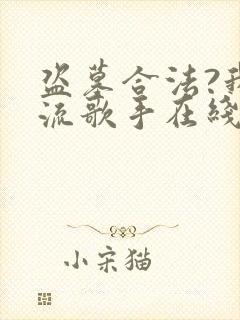 盗墓合法?我
流歌手在綫
小宋猫